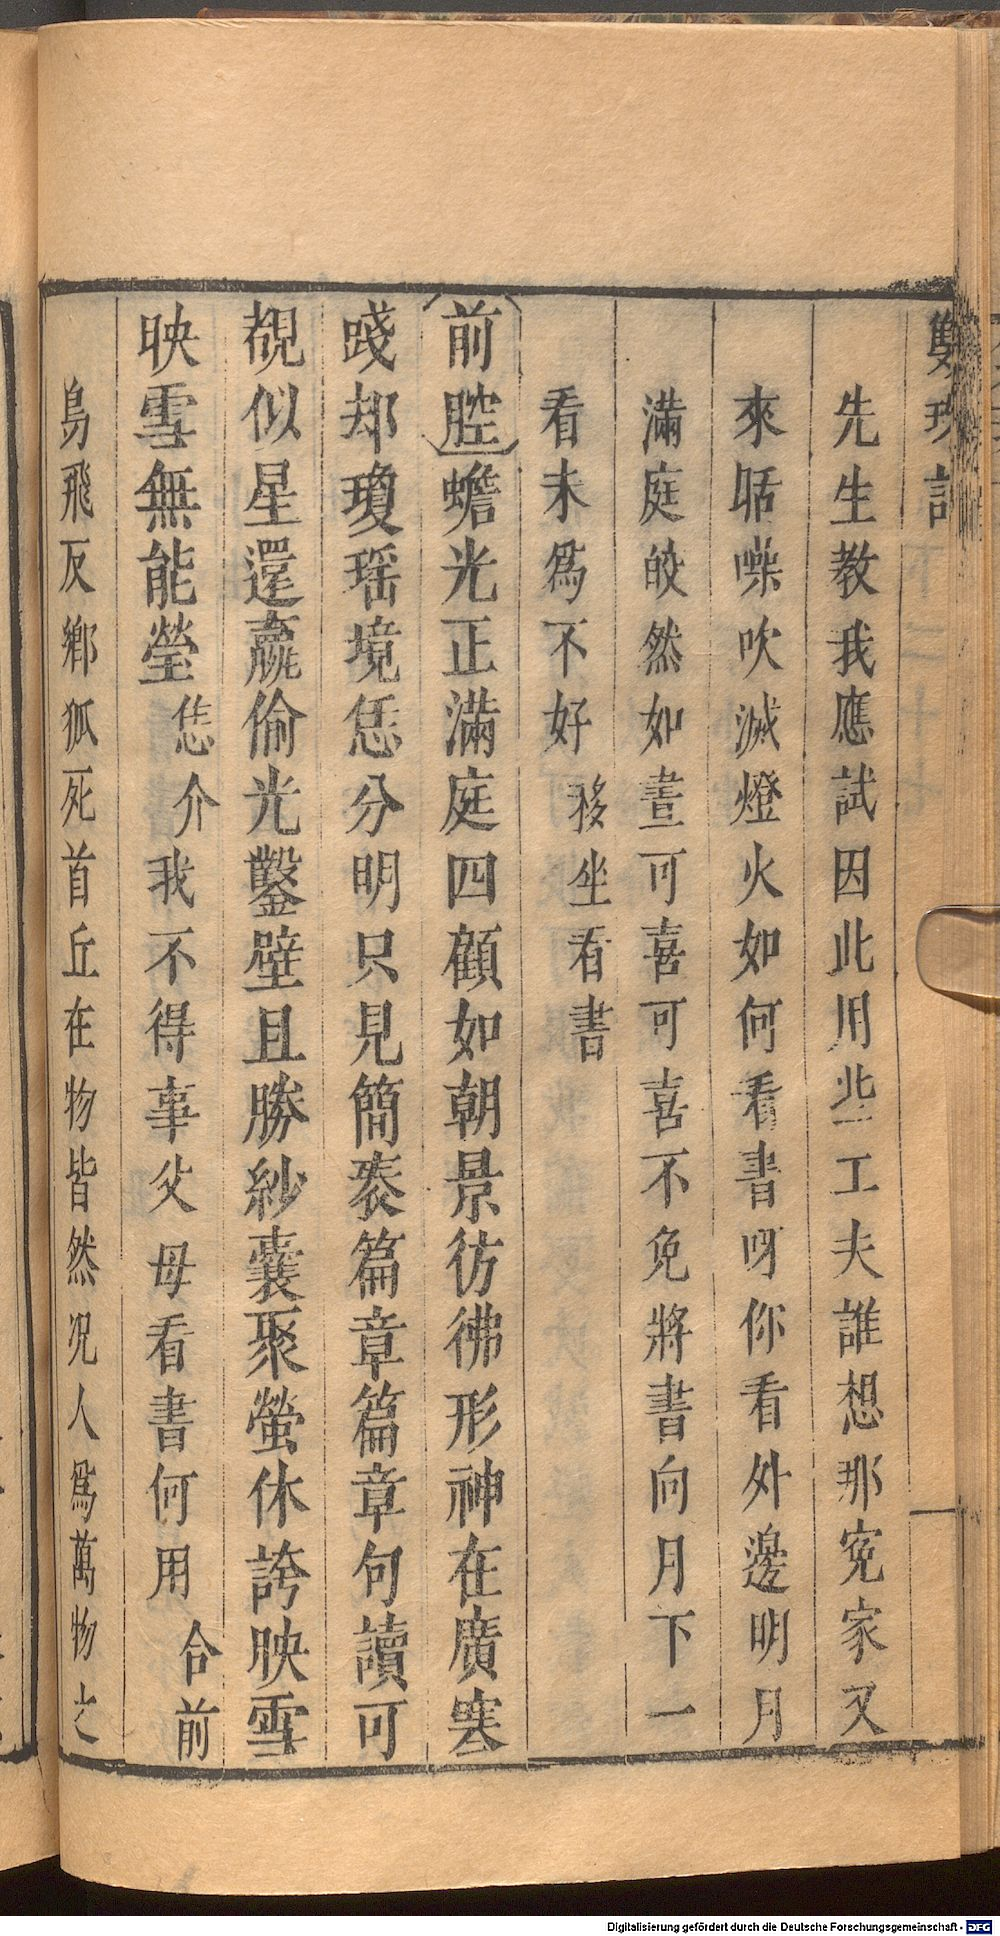 雙珠記
先生教我應試因此用些工夫誰想那寃家又
來聒噪吹滅燈火如何看書呀你看外邊明月
滿庭皎然如晝可喜可喜不免將書向月下一
看未爲不好移坐看書
前腔蟾光正滿庭四顧如朝景彷彿形神在廣寒
踐却瓊瑶境恁分明只見簡袠篇章篇章句讀可
覩似星還贏偷光鑿壁且勝紗囊聚螢休誇映雪
映雪無能瑩恁介我不得事父母看書何用合前
鳥飛反鄉狐死首丘在物皆然况人爲萬物之
Digitalisierung gefördert durch die Deutsche Forschungsgemeinschaft - DFG